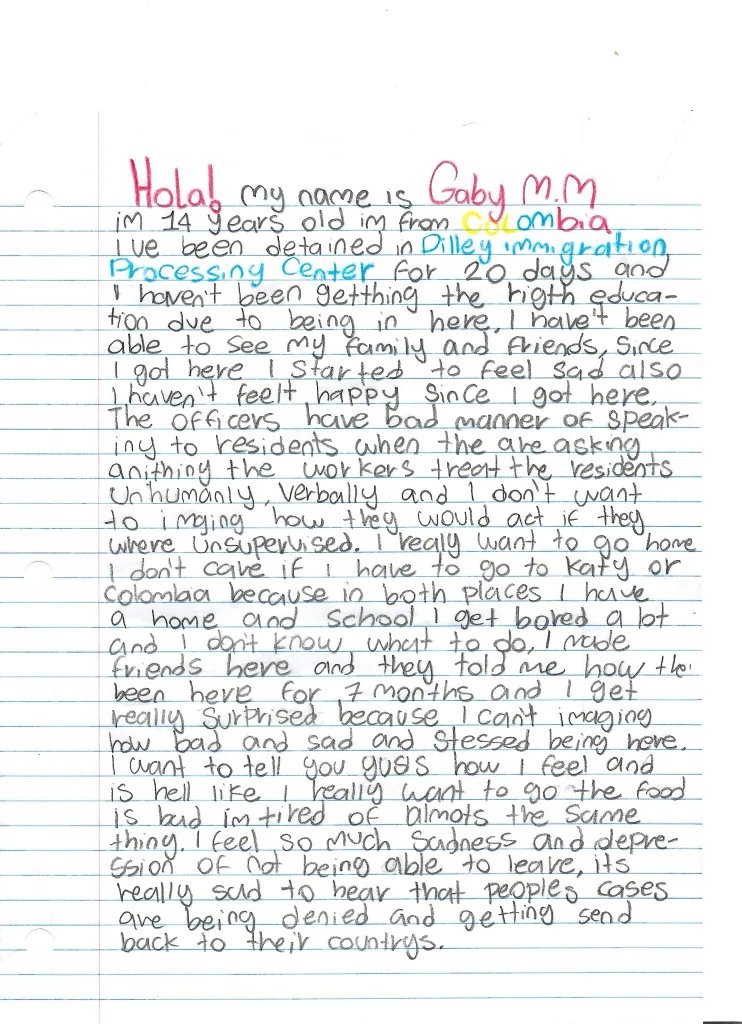 Hola! my name is Gaby M.M
im 14 years old im from COLombia
I've been detained in Dilley immigration
Processing Center for 20 days and
I haven't been getthing the rigth educa-
tion due to being in here, I have't been
able to see my family and friends, Since
I got here I started to feel sad also
I haven't feelt happy since I got here.
The officers have bad manner of speak-
ing to residents when the are asking
anithing the workers treat the residents
Unhumanly, verbally and I don't want
to imging how they would act if they
where unsupervised. I realy want to go home
I don't care if I have to go to Katy or
Colombia because in both places I have
a home and school I get bored a lot
and I don't know what to do, I made
friends here and they told me how the
been here for 7 months and I get
really surprised because I can't imaging
how bad and sad and stessed being here.
I want to tell you guys how I feel and
is hell like I really want to go the food
is bad im tired of almots the same
thing. I feel so much sadness and depre-
ssion of not being able to leave, its
really sad to hear that peoples cases
are being denied and getting send
back to their countrys.